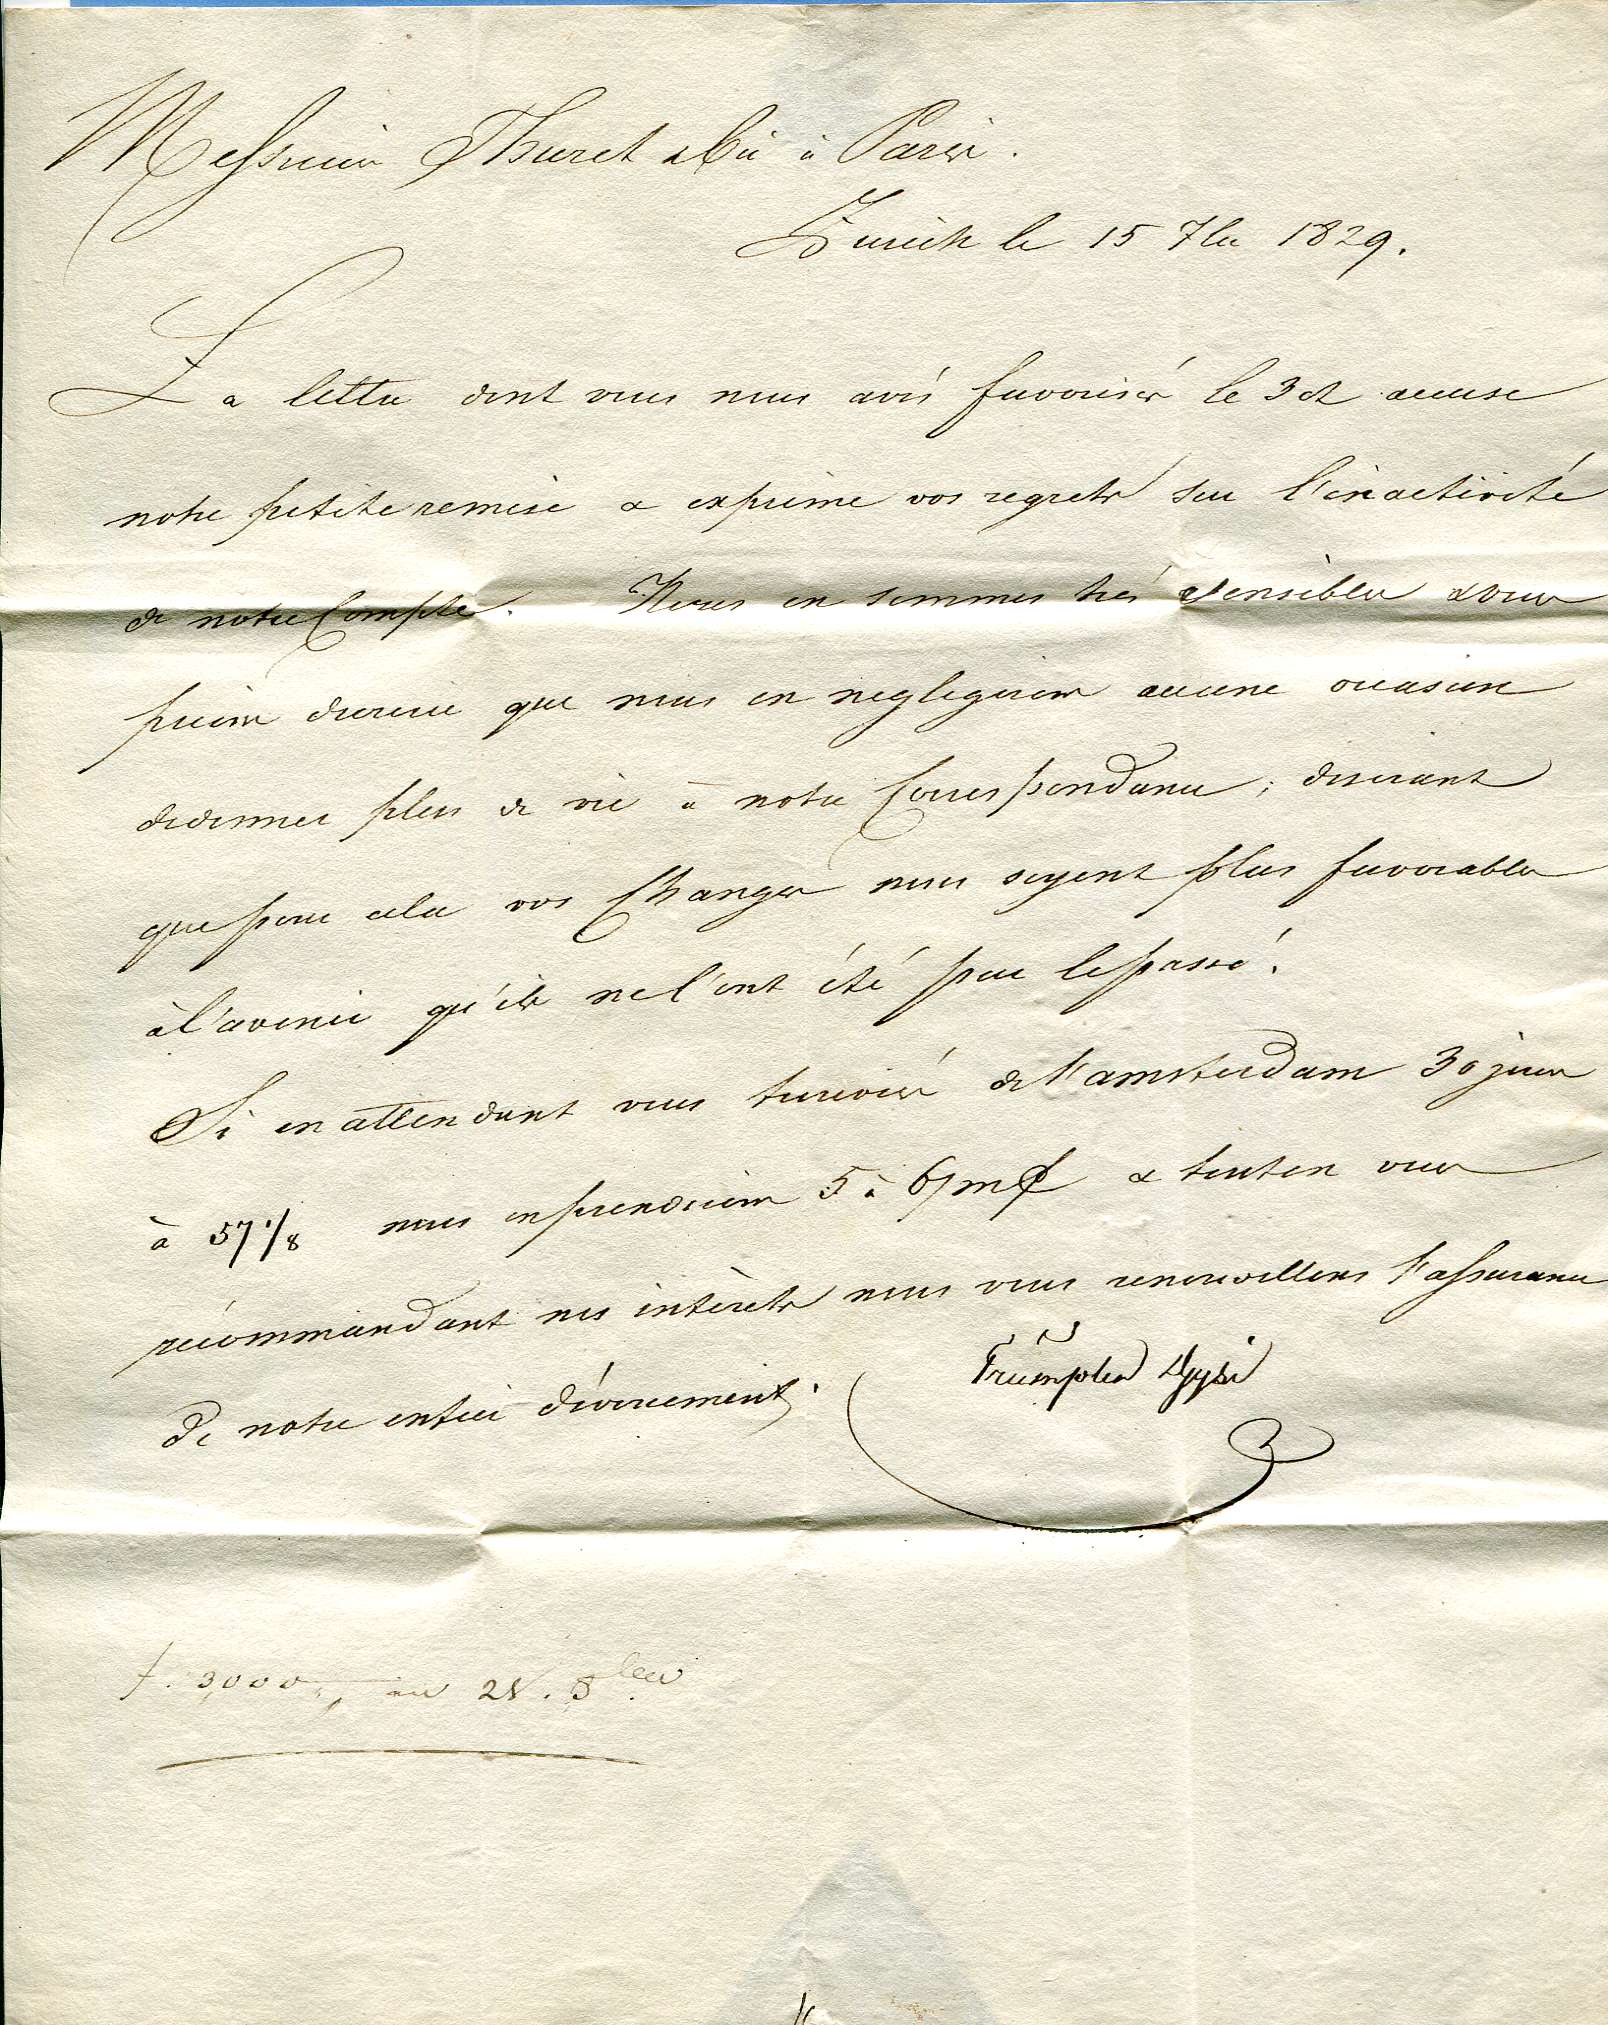 Messieurs Thuret & Cie à Paris.
Zurich le 15 7bre 1829.
La lettre dont vous nous avés favorisés le 3 ct accuse
notre petite remise & exprime vos regrets sur l'inactivité
de notre Compte. Nous en sommes très sensibles & vous
prions de croire que nous en negligerons aucune occasion
de donner plus de vie à notre Correspondance; desirant
que pour cela vos Changes nous soyent plus favorables
à l'avenir qu'ils ne l'ont été par le passé.
Si en attendant vous trouviés de l'amsterdam 30 jours
à 57 1/8 nous en prendrions 5 à 6/m & tout en vous
récommandant nos intérêts nous vous renouvellons l'assurance
de notre entier dévouement.
Trümpler & Gysi
f. 3,000 au 28. 8bre